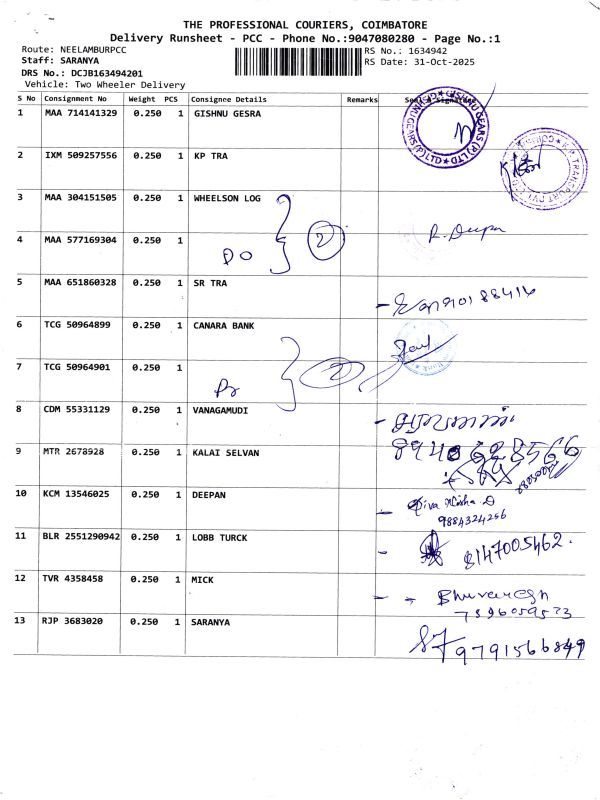 THE PROFESSIONAL COURIERS, COIMBATORE
Delivery Runsheet - PCC - Phone No.:9047080280 - Page No.:1
Route: NEELAMBURPCC RS No.: 1634942
Staff: SARANYA RS Date: 31-Oct-2025
DRS No.: DCJB163494201
Vehicle: Two Wheeler Delivery
S No Consignment No Weight PCS Consignee Details Remarks Seal & Signature
1 MAA 714141329 0.250 1 GISHNU GESRA
2 IXM 509257556 0.250 1 KP TRA
3 MAA 304151505 0.250 1 WHEELSON LOG
2
4 MAA 577169304 0.250 1 Do R. Deepa
5 MAA 651860328 0.250 1 SR TRA
6 TCG 50964899 0.250 1 CANARA BANK
7 TCG 50964901 0.250 1 2
8 CDM 55331129 0.250 1 VANAGAMUDI
9 MTR 2678928 0.250 1 KALAI SELVAN
10 KCM 13546025 0.250 1 DEEPAN
9884324256
11 BLR 2551290942 0.250 1 LOBB TURCK 8147005462.
12 TVR 4358458 0.250 1 MICK
13 RJP 3683020 0.250 1 SARANYA
9791566849